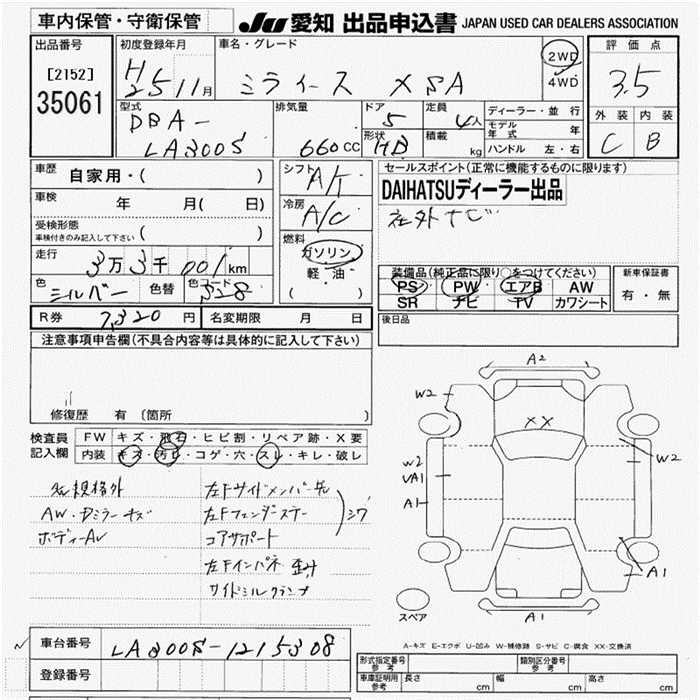 車内保管・守衛保管
JU 愛知 出品申込書 JAPAN USED CAR DEALERS ASSOCIATION
出品番号
[2152]
35061
初度登録年月
H25 11月
車名・グレード
ミライース X SA
2WD
4WD
評価点
3.5
外装 内装
C B
型式
DBA-
LA300S
排気量
660CC
ドア
5
定員
4人
形状
HB
積載
kg
ディーラー・並行
モデル年式 年
ハンドル 左・右
車歴
自家用・( )
車検
年 月( 日)
受検形態
車検付きのみ記入して下さい ( )
走行
3万3千001km
色
シルバー
色替
色コード
S28
シフト
A/T
冷房
A/C
燃料
ガソリン
軽・油
( )
セールスポイント(正常に機能するものに限ります)
DAIHATSUディーラー出品
社外ナビ
装備品(純正品に限り○をつけてください)
PS PW エアB AW
SR ナビ TV カワシート
新車保証書
有・無
R券 7,320円
名変期限 月 日
後日品
注意事項申告欄(不具合内容等は具体的に記入して下さい)
修復歴 有 (箇所 )
検査員
記入欄
FW キズ・飛石・ヒビ割・リペア跡・X要
内装 キズ・汚れ・コゲ・穴・スレ・キレ・破レ
規格外
AW・Dミラーキズ
ボディーAU
左Fサイドメンバー先
左Fフェンダーステー
コアサポート
シワ
左Fインパネ 歪み
サイドシルクランプ
A2
W2
XX
W2
UA1
A1
W2
A1
A1
スペア
A-キズ E-エクボ U-凹み W-補修跡 S-サビ C-腐食 XX-交換済
車台番号
LA300S-1215308
登録番号
形式指定番号
参考
類別区分番号
参考
車庫証明用
参考
長さ cm
幅 cm
高さ cm